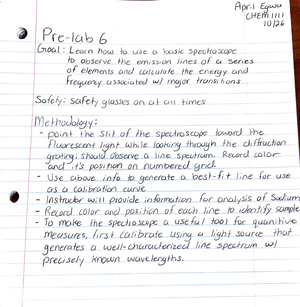 April Egwu
CHEM 1111
10/26
Pre-lab 6
Goal: Learn how to use a basic spectroscope
to observe the emission lines of a series
of elements and calculate the energy and
frequency associated w/ major transitions
Safety: Safety glasses on at all times
Methodology:
- point the slit of the spectroscope toward the
fluorescent light while looking through the diffraction
grating; should observe a line spectrum. Record color
and it's position on numbered grid.
- Use above info to generate a best-fit line for use
as a calibration curve
- Instructor will provide information for analysis of Sodium
- Record color and position of each line to identify sample
- To make the spectroscope a useful tool for quanitive
measures, first calibrate using a light source that
generates a well-characterized line spectrum w/
precisely known wavelengths.